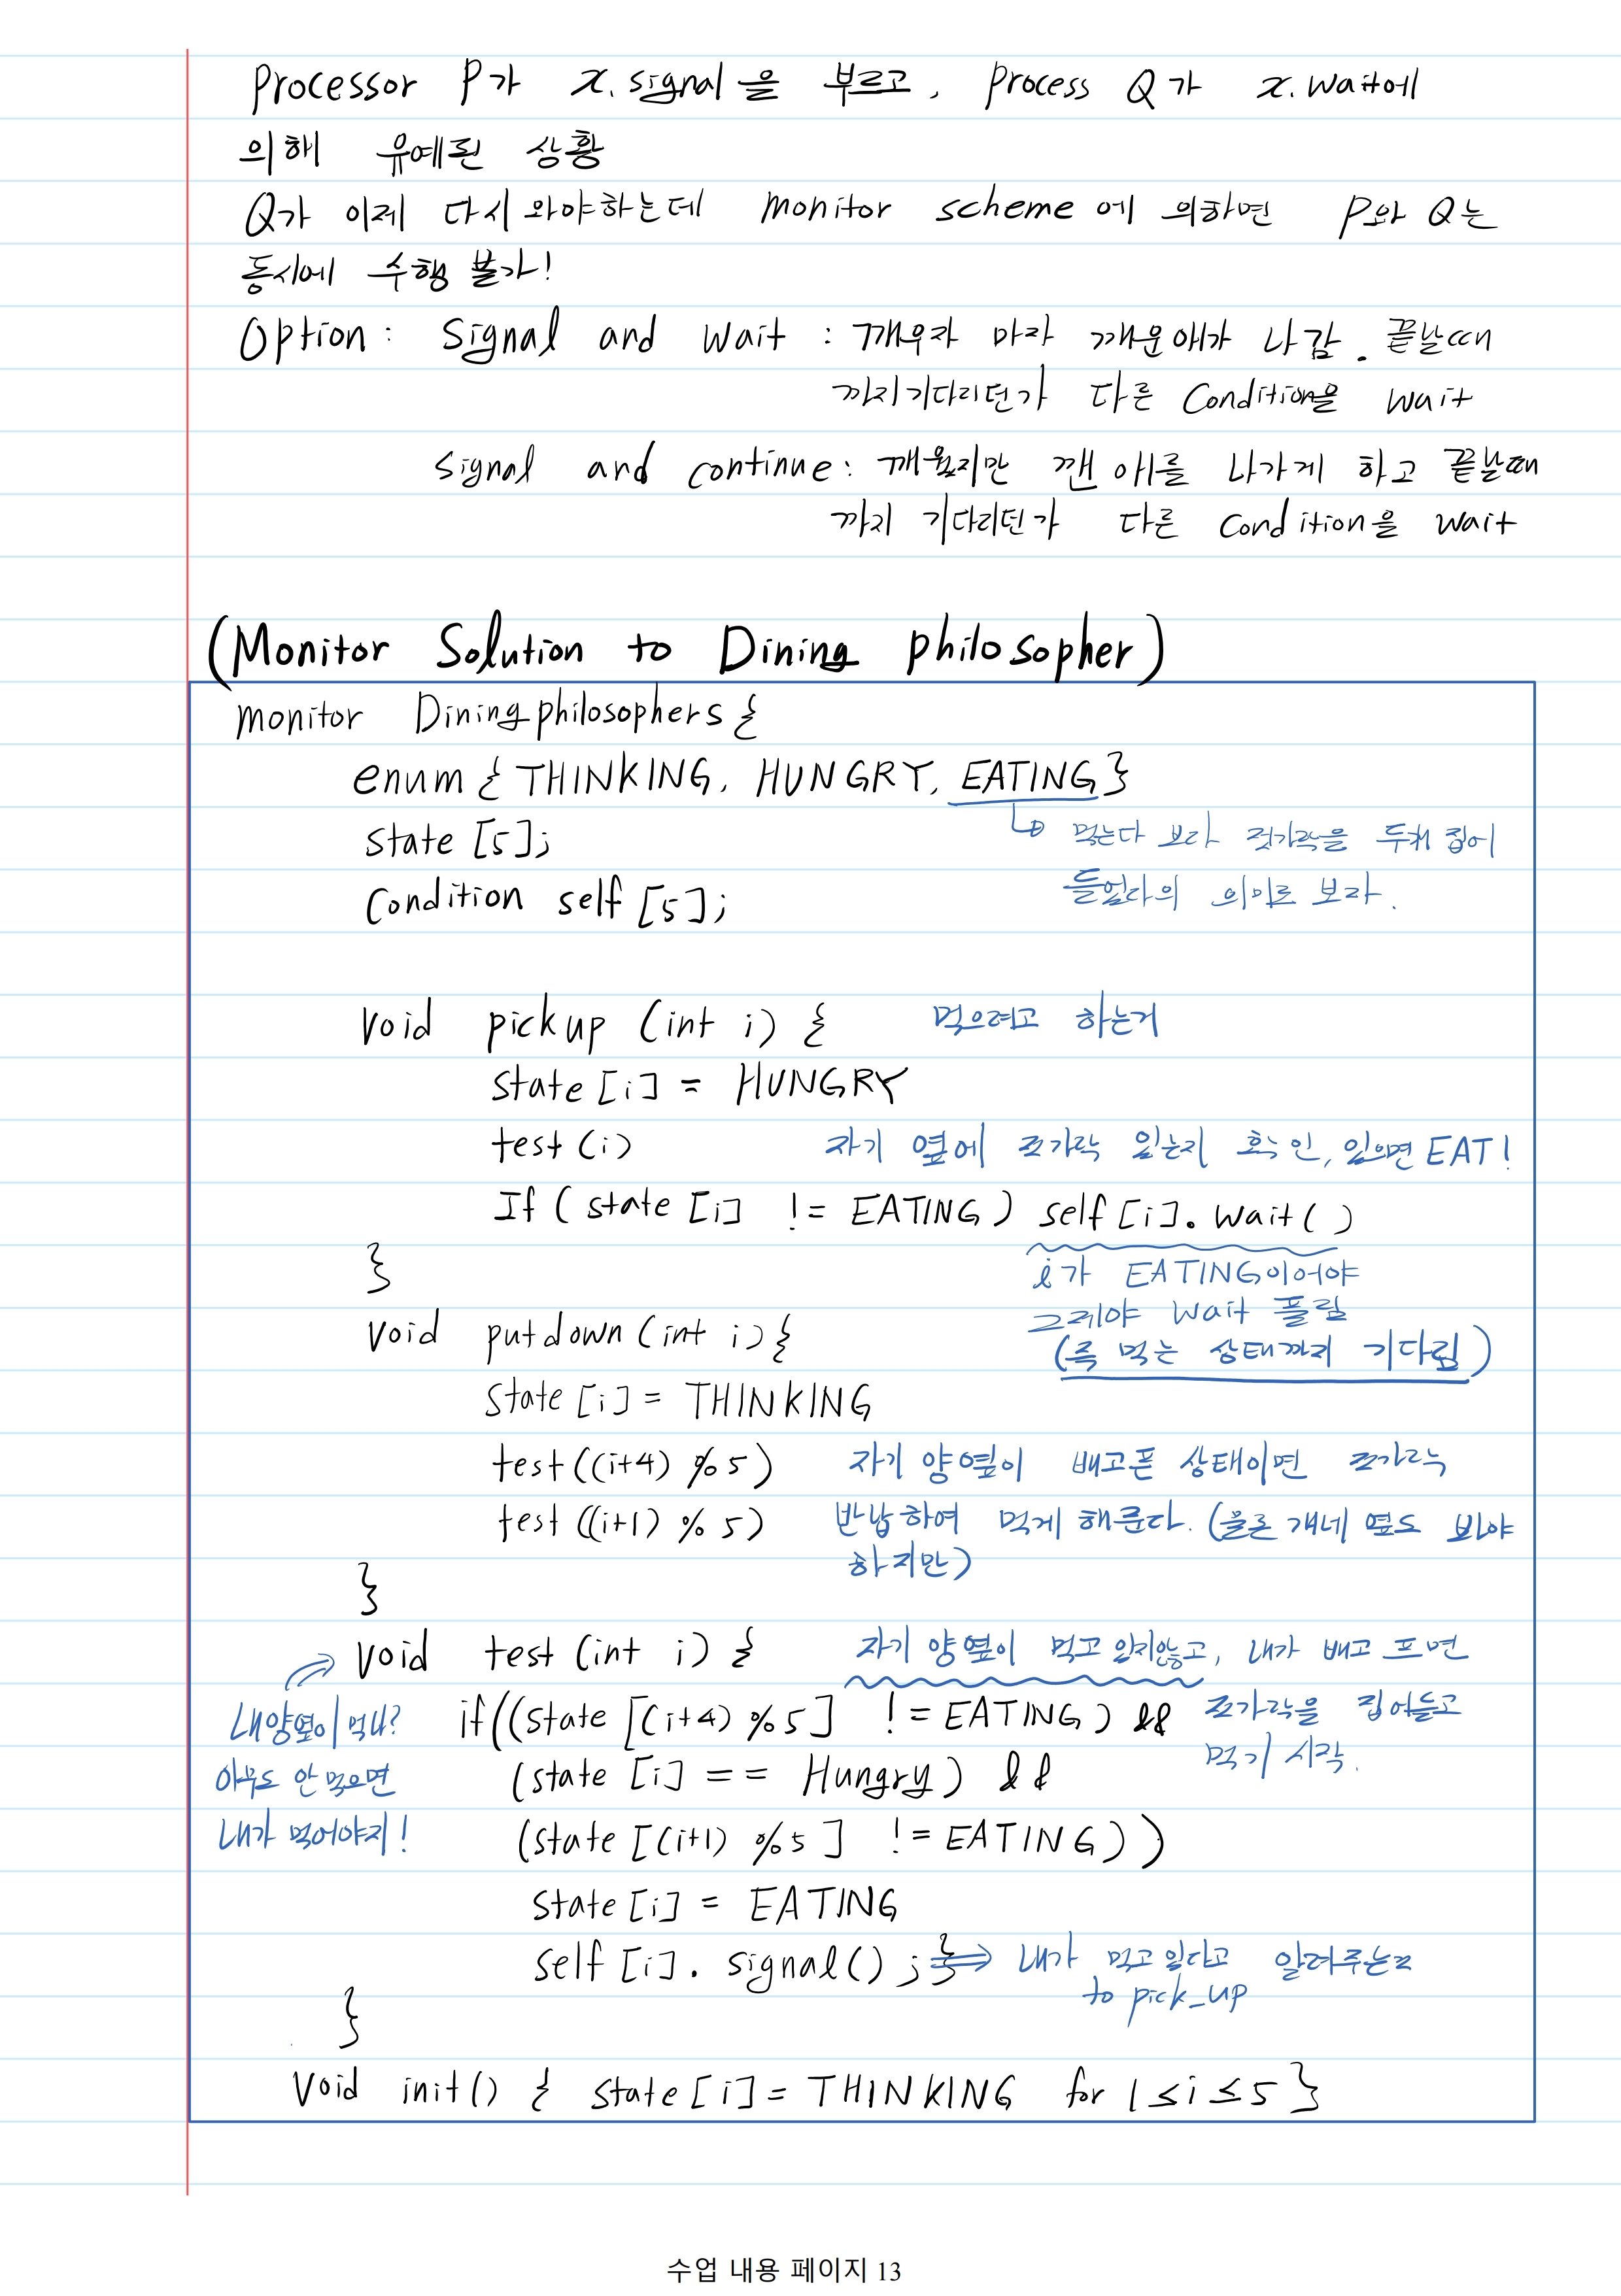 Processor P가 x.signal을 부르고, process Q가 x.wait에
의해 유예된 상황
Q가 이제 다시 와야하는데 monitor scheme에 의하면 P와 Q는
동시에 수행 불가!
Option : Signal and wait : 깨우자 마자 깨운애가 나감. 끝날때
까지기다리던가 다른 Condition을 wait
signal and continue : 깨웠지만 깬 애를 나가게 하고 끝날때
까지 기다리던가 다른 condition을 wait
(Monitor Solution to Dining philosopher)
monitor Diningphilosophers {
enum { THINKING, HUNGRY, EATING }
state [5];
↳ 먹는다 보다 젓가락을 두개 집어
Condition self [5];
들었다의 의미로 보라.
void pickup (int i) { 먹으려고 하는거
state [i] = HUNGRY
test (i) 자기 옆에 젓가락 있는지 확인, 있으면 EAT!
If ( state [i] != EATING ) self [i]. wait ( )
}
i가 EATING이어야
그래야 wait 풀림
void putdown (int i) {
(즉 먹는 상태까지 기다림)
state [i] = THINKING
test ((i+4) % 5) 자기 양옆이 배고픈 상태이면 젓가락
test ((i+1) % 5) 반납하여 먹게 해준다. (물론 걔네 옆도 봐야
하지만)
}
void test (int i) { 자기 양옆이 먹고 있지않고, 내가 배고프면
내양옆이 먹나? if((state [(i+4) % 5] != EATING ) && 젓가락을 집어들고
먹기 시작.
아무도 안 먹으면 (state [i] == Hungry ) &&
내가 먹어야지! (state [(i+1) % 5 ] != EATING ))
state [i] = EATING
self [i]. signal() ; } ⇒ 내가 먹고 있다고 알려주는
to pick_up
}
void init() { state [i] = THINKING for 1 ≤ i ≤ 5 }
수업 내용 페이지 13